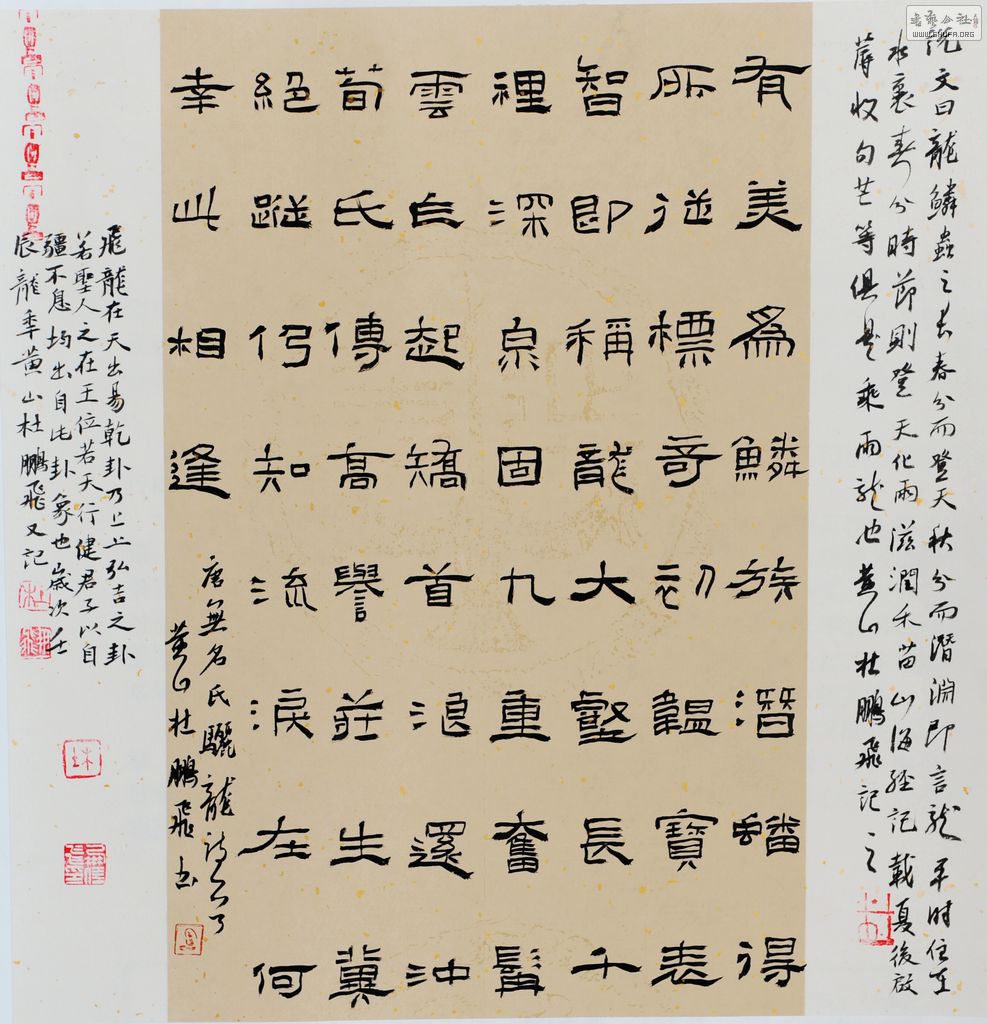 説文曰龍鱗蟲之長春分而登天秋分而潛淵即言龍平時住在
水裏春分時節則登天化雨滋潤禾苗山海經記載夏後啟
蓐收句芒等俱是乘雨龍也黃山杜鵬飛記之
有美爲鱗族潛蟠得
所從標奇初韞寶表
智即稱龍大壑長千
裡深泉固九重奮髯
雲乍起矯首浪還沖
荀氏傳高譽莊生冀
絕蹤仍知流淚在何
幸此相逢
唐無名氏驪龍詩
黃山杜鵬飛書
飛龍在天出易乾卦乃上上弘吉之卦
若聖人之在王位若天行健君子以自
疆不息均出自此卦象也歲次壬
辰龍年黃山杜鵬飛又記